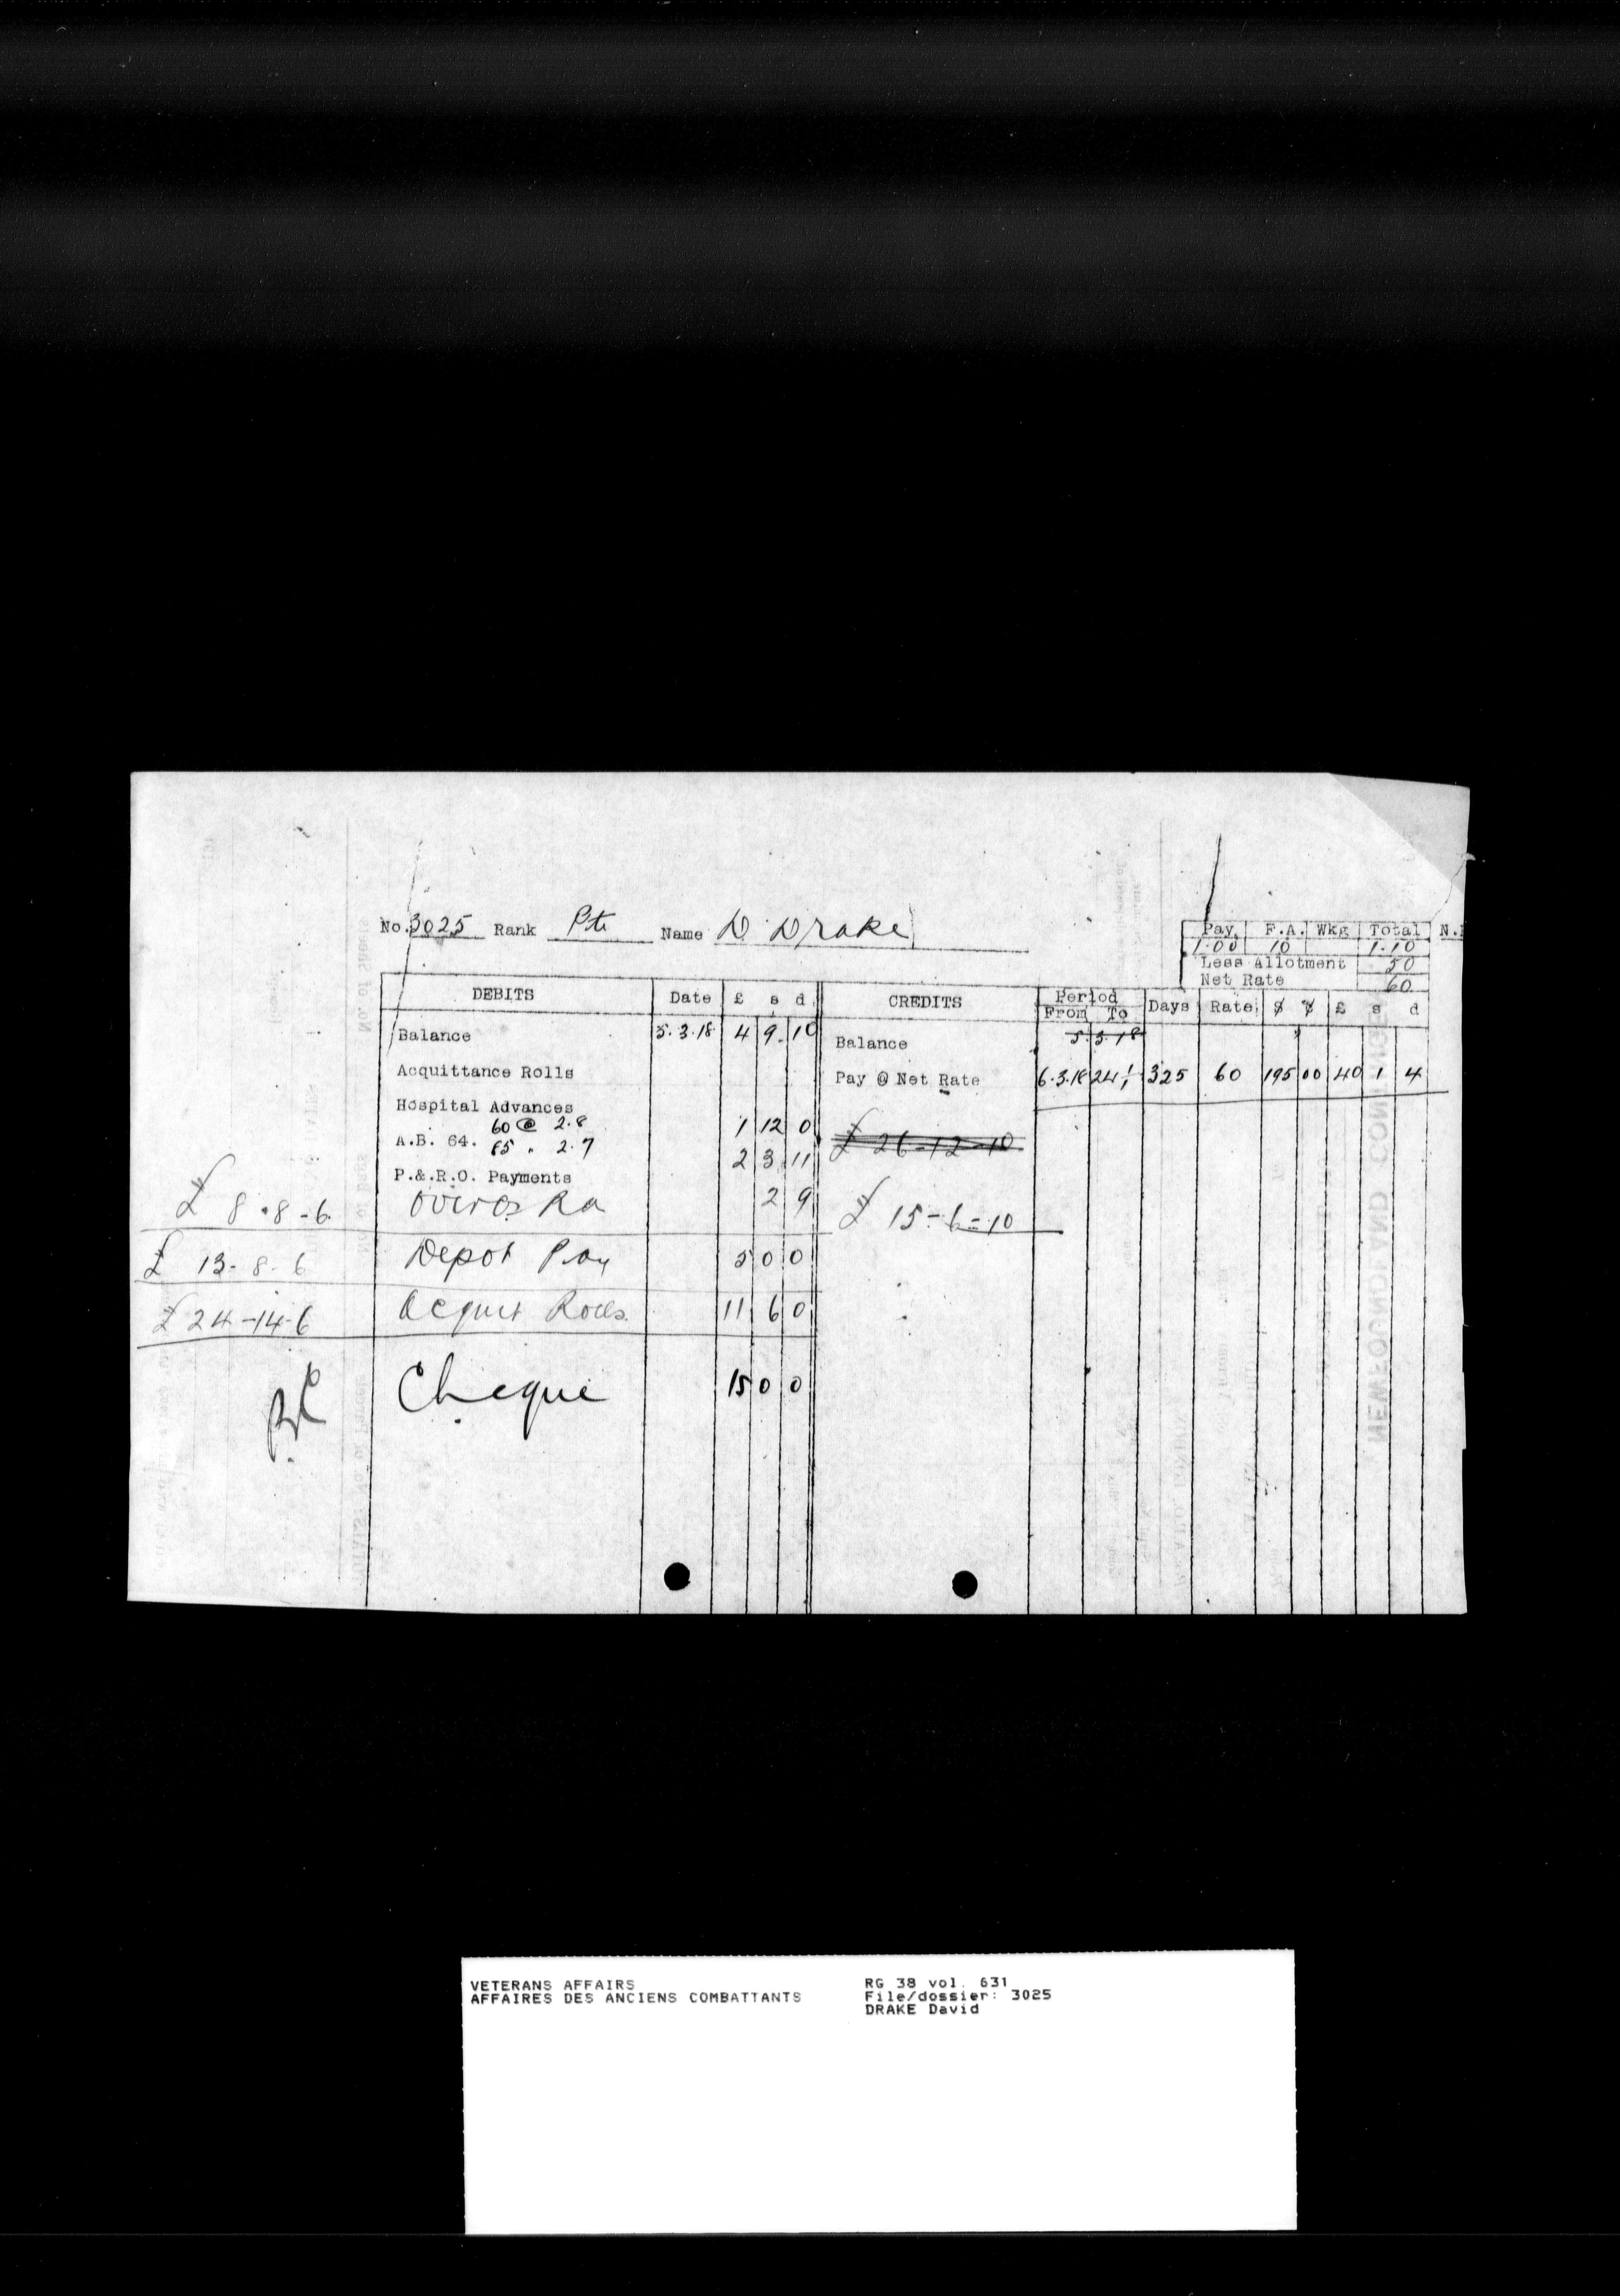 No. 3025 Rank Pte Name D Drake
Pay F.A. Wkg Total N.
1.00 10 1.10
Less Allotment 50
Net Rate 60
DEBITS Date £ s d CREDITS Period From To Days Rate $ ¢ £ s d
Balance 5.3.18 4 9 10 Balance 5.3.18
Acquittance Rolls Pay @ Net Rate 6.3.18 24/1 325 60 195 00 40 1 4
Hospital Advances
60 @ 2.8 1 12 0 £ 26-12-10
A.B. 64. 85 " 2.7 2 3 11
P.&.R.O. Payments
£ 8.8-6 2 9 £ 15-6-10
£ 13-8-6 Depot Pay 5 0 0
£ 24-14-6 Acquit Rolls 11 6 0
Cheque 15 0 0
NEWFOUNDLAND CONTINGE
No. of Sheets
VETERANS AFFAIRS
AFFAIRES DES ANCIENS COMBATTANTS
RG 38 vol. 631
File/dossier: 3025
DRAKE David